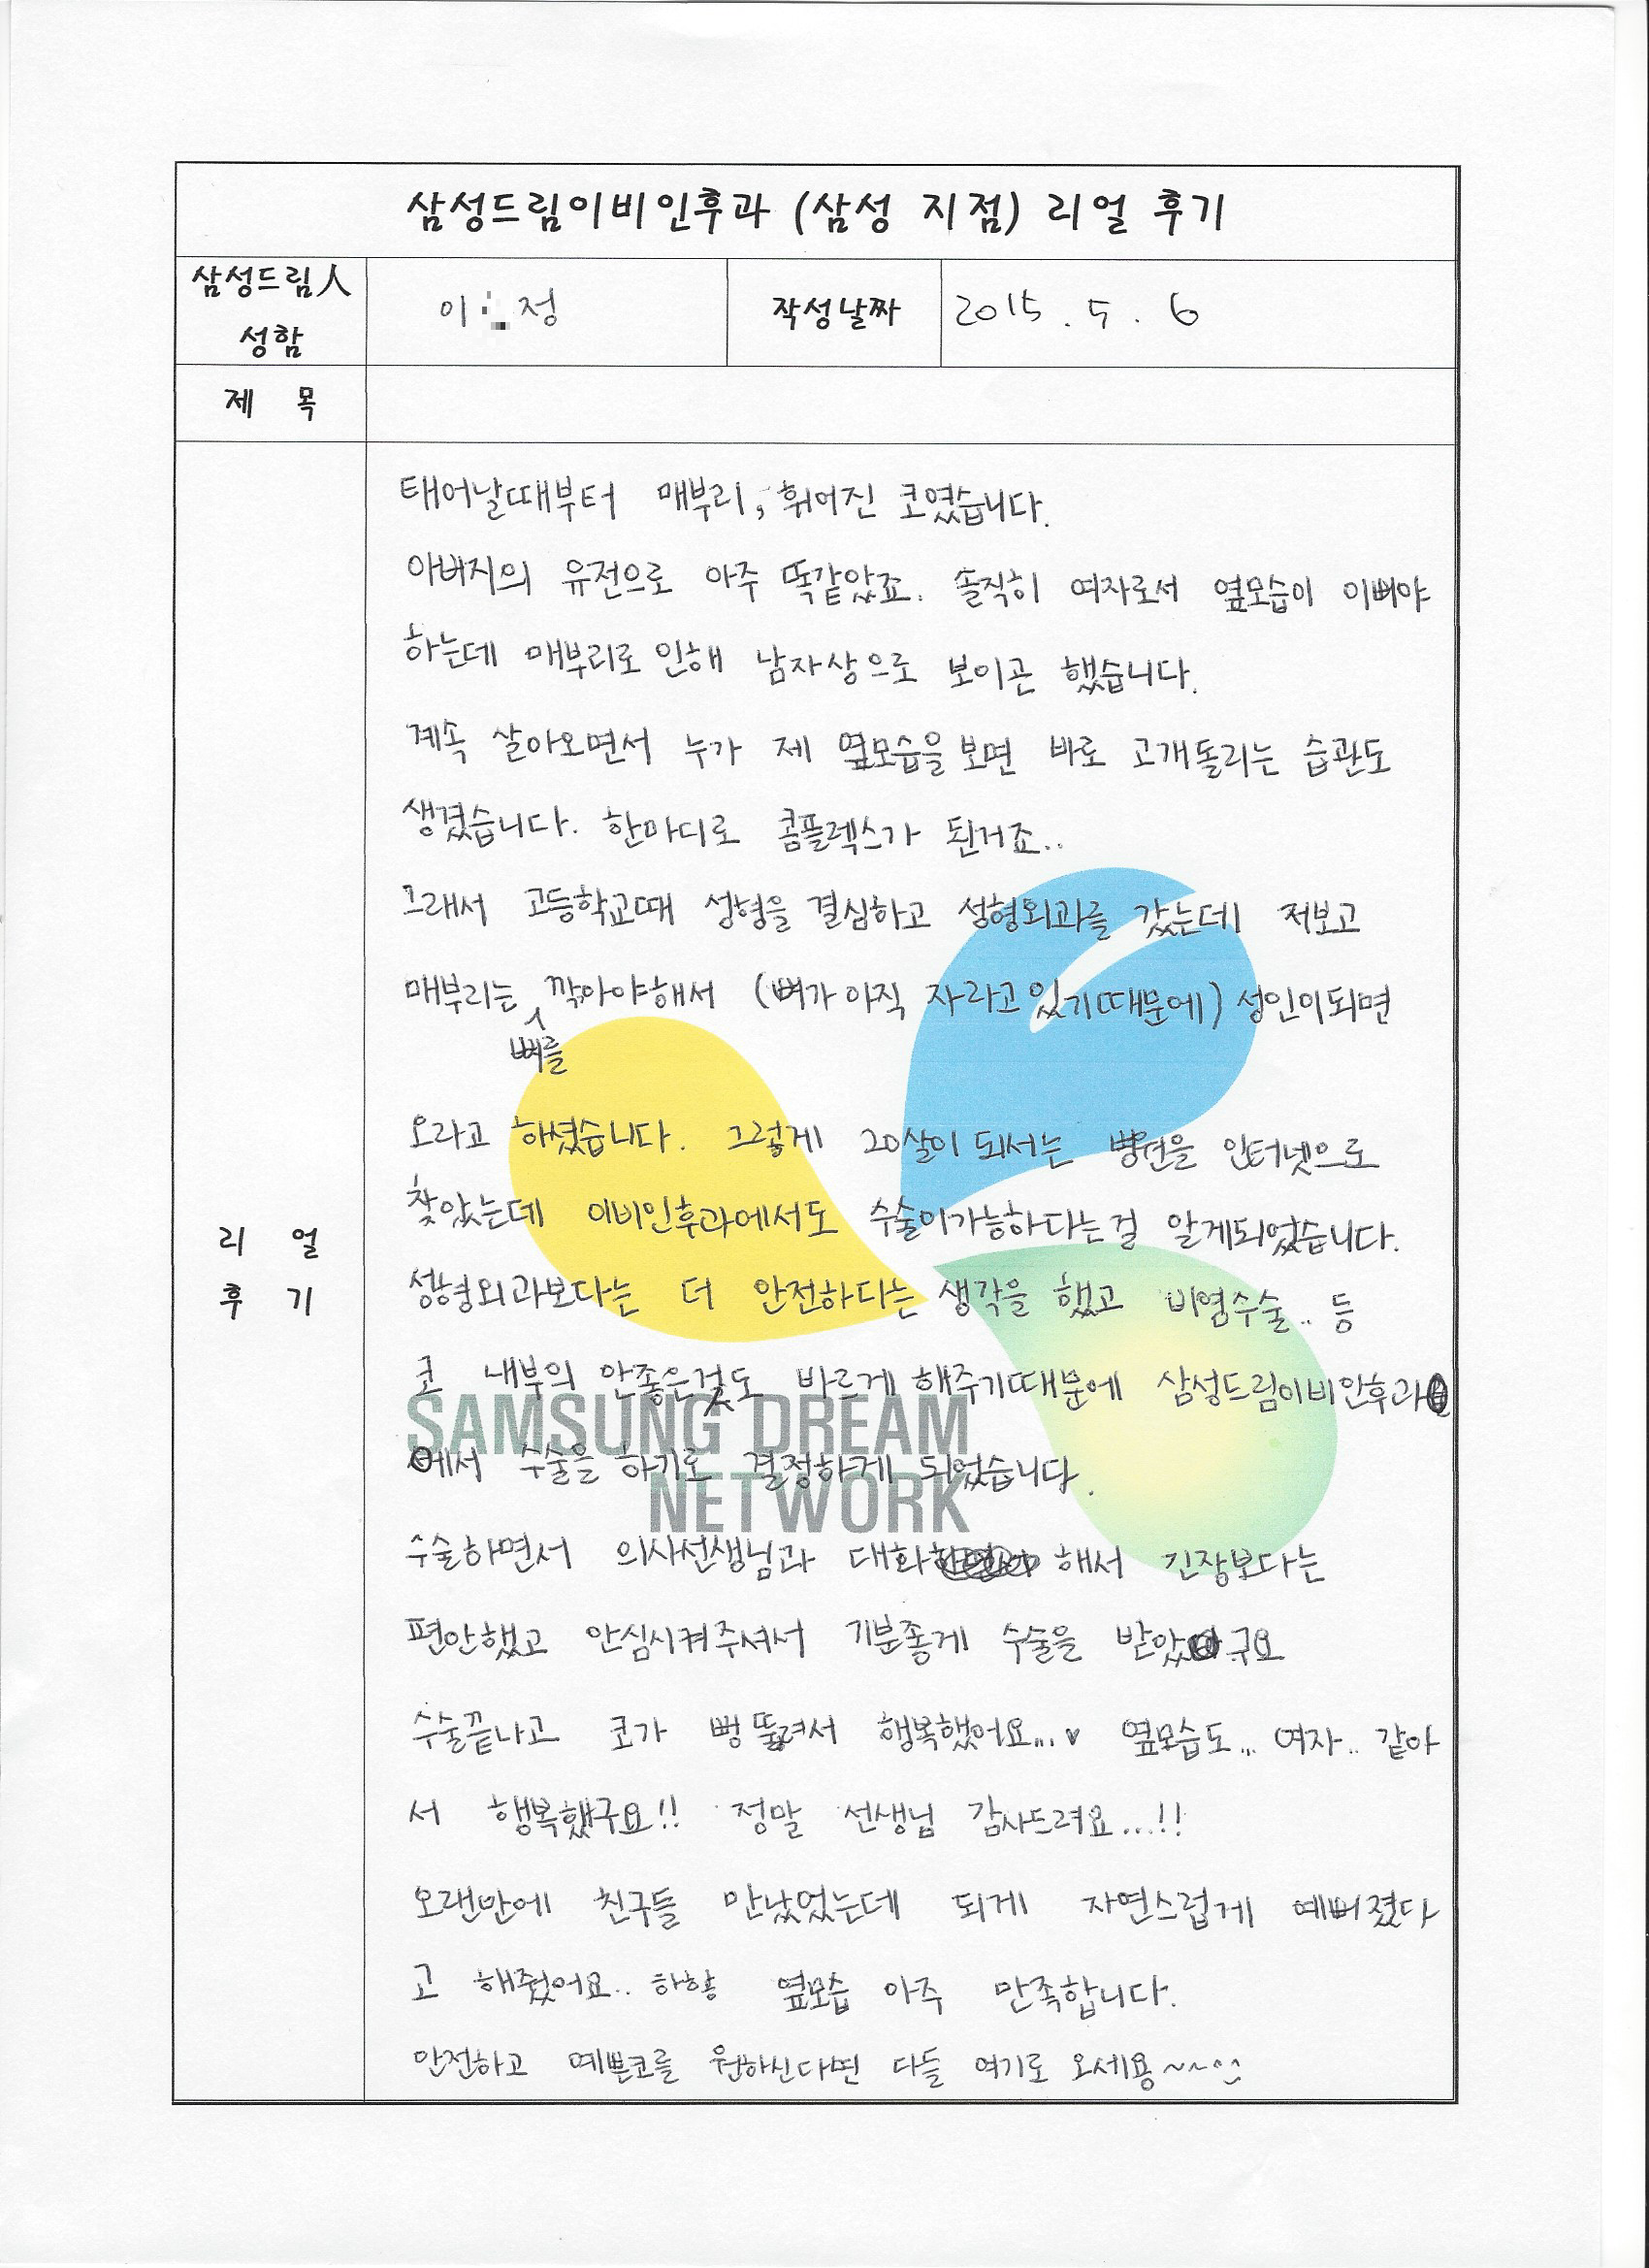 삼성드림이비인후과 (삼성 지점) 리얼 후기
삼성드림人
성함
이 정
작성날짜
2015. 5. 6
제 목
리 얼
후 기
태어날때부터 매부리, 휘어진 코였습니다.
아버지의 유전으로 아주 똑같았죠. 솔직히 여자로서 옆모습이 이뻐야
하는데 매부리로 인해 남자상으로 보이곤 했습니다.
계속 살아오면서 누가 제 옆모습을 보면 바로 고개돌리는 습관도
생겼습니다. 한마디로 콤플렉스가 된거죠..
그래서 고등학교때 성형을 결심하고 성형외과를 갔는데 저보고
매부리는 깎아야해서 (뼈가 아직 자라고있기때문에) 성인이되면
뼈를
오라고 하셨습니다. 그렇게 20살이 되서는 병원을 인터넷으로
찾았는데 이비인후과에서도 수술이가능하다는걸 알게되었습니다.
성형외과보다는 더 안전하다는 생각을 했고 비염수술.. 등
코 내부의 안좋은것도 바르게 해주기때문에 삼성드림이비인후과
에서 수술을 하기로 결정하게 되었습니다.
SAMSUNG DREAM
NETWORK
수술하면서 의사선생님과 대화 해서 긴장보다는
편안했고 안심시켜주셔서 기분좋게 수술을 받았구요
수술끝나고 코가 뻥 뚫려서 행복했어요...♥ 옆모습도... 여자.. 같아
서 행복했구요!! 정말 선생님 감사드려요...!!
오랜만에 친구들 만났었는데 되게 자연스럽게 예뻐졌다
고 해줬어요.. 하핳 옆모습 아주 만족합니다.
안전하고 예쁜코를 원하신다면 다들 여기로 오세용~~^^